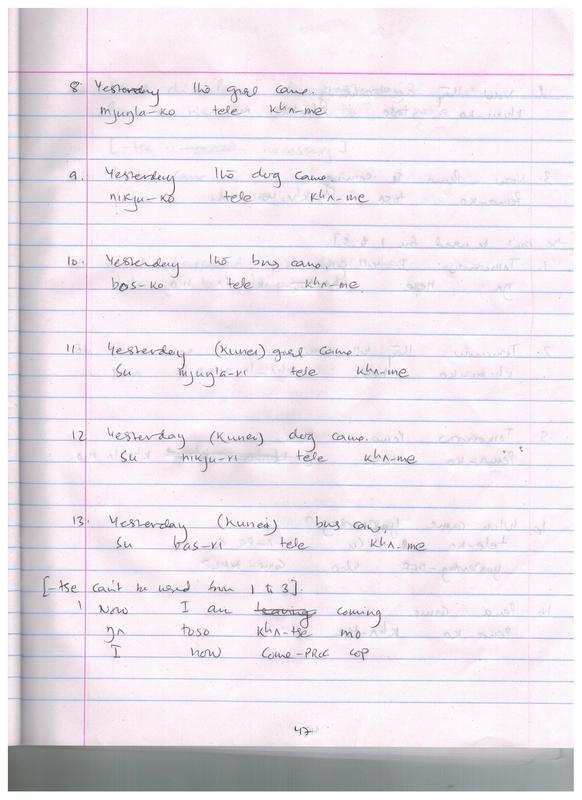 8. Yesterday lhō girl came.
mjuŋla-ko tele kʰʌ-me
9. Yesterday lhō dog came.
nikju-ko tele kʰʌ-me
10. Yesterday lhō bus came.
bas-ko tele kʰʌ-me
11. Yesterday (kunei) girl came.
su mjuŋla-ri tele kʰʌ-me
12 Yesterday (kunei) dog came.
su nikju-ri tele kʰʌ-me
13. Yesterday (kunei) bus came.
su bas-ri tele kʰʌ-me
[-tse can't be used from 1 to 3].
1 Now I am coming
ŋʌ toso kʰʌ-tse mo
I now come-PROG COP
47